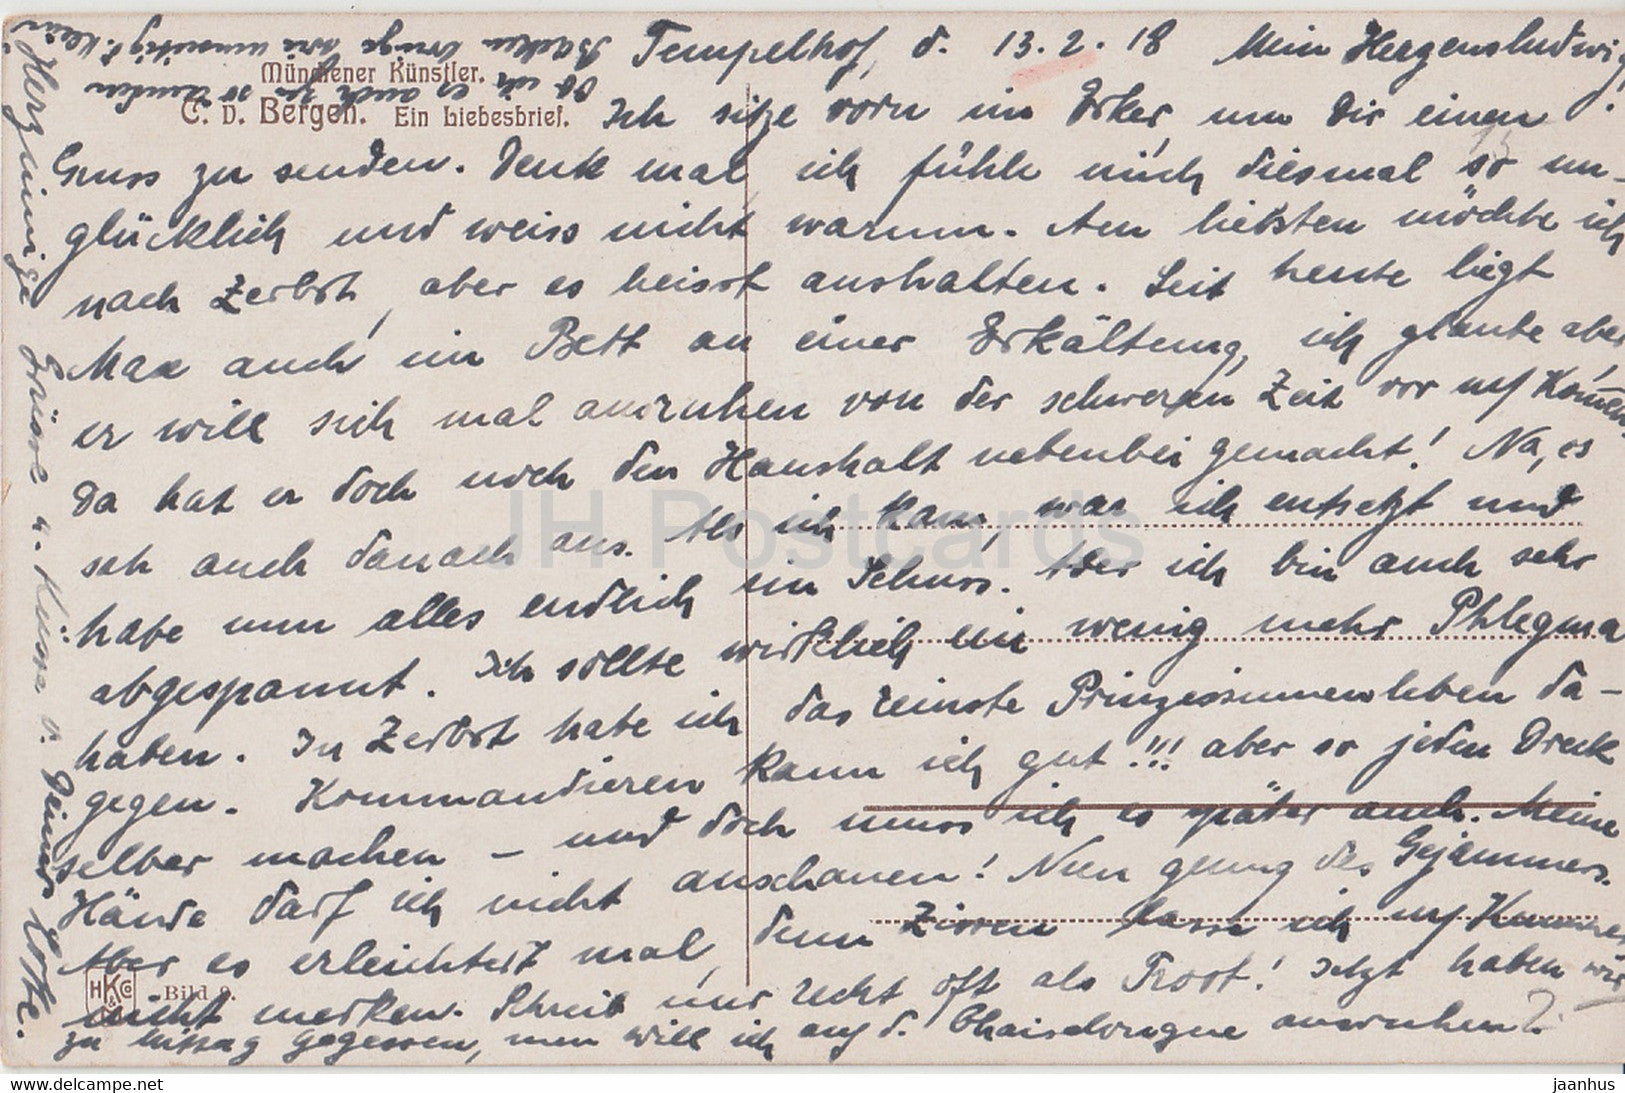 Tempelhof, d. 13.2.18 Mein Herzensludwig!
Münchener Künstler.
C. v. Bergen. Ein Liebesbrief.
Ich sitze vorn im Erker, um Dir einen
Gruss zu senden. Denk mal, ich fühle mich diesmal so un-
glücklich und weiss nicht warum. Am liebsten möchte ich
nach Zerbst, aber es heisst aushalten. Seit heute liegt
Max auch im Bett an einer Erkältung, ich glaube aber,
er will sich mal ausruhen von der schweren Zeit vor uns. Kommen.
Da hat er doch noch den Haushalt nebenbei gemacht! Na, es
sah auch danach aus. Als ich kam, war ich entsetzt und
habe nun alles endlich im Schuss. Aber ich bin auch sehr
abgespannt. Ich sollte wirklich ein wenig mehr Phlegma
haben. In Zerbst habe ich das reinste Prinzessinnenleben da-
gegen. Kommandieren kann ich gut!!! aber so jeden Dreck
selber machen – und doch muss ich es später auch. Meine
Hände darf ich nicht anschauen! Nun genug des Gejammers.
Aber es erleichtert mal, denn lasse ich
nicht merken. Schreib nur recht oft als Trost! Jetzt haben wir
zu Mittag gegessen, nun will ich auf d. Chaiselongue ausruhen
Herzinnige Grüsse u. Küsse v. Deiner Lotte.
HKCo
Bild 9.
JH Postcards
www.delcampe.net
jaanhus